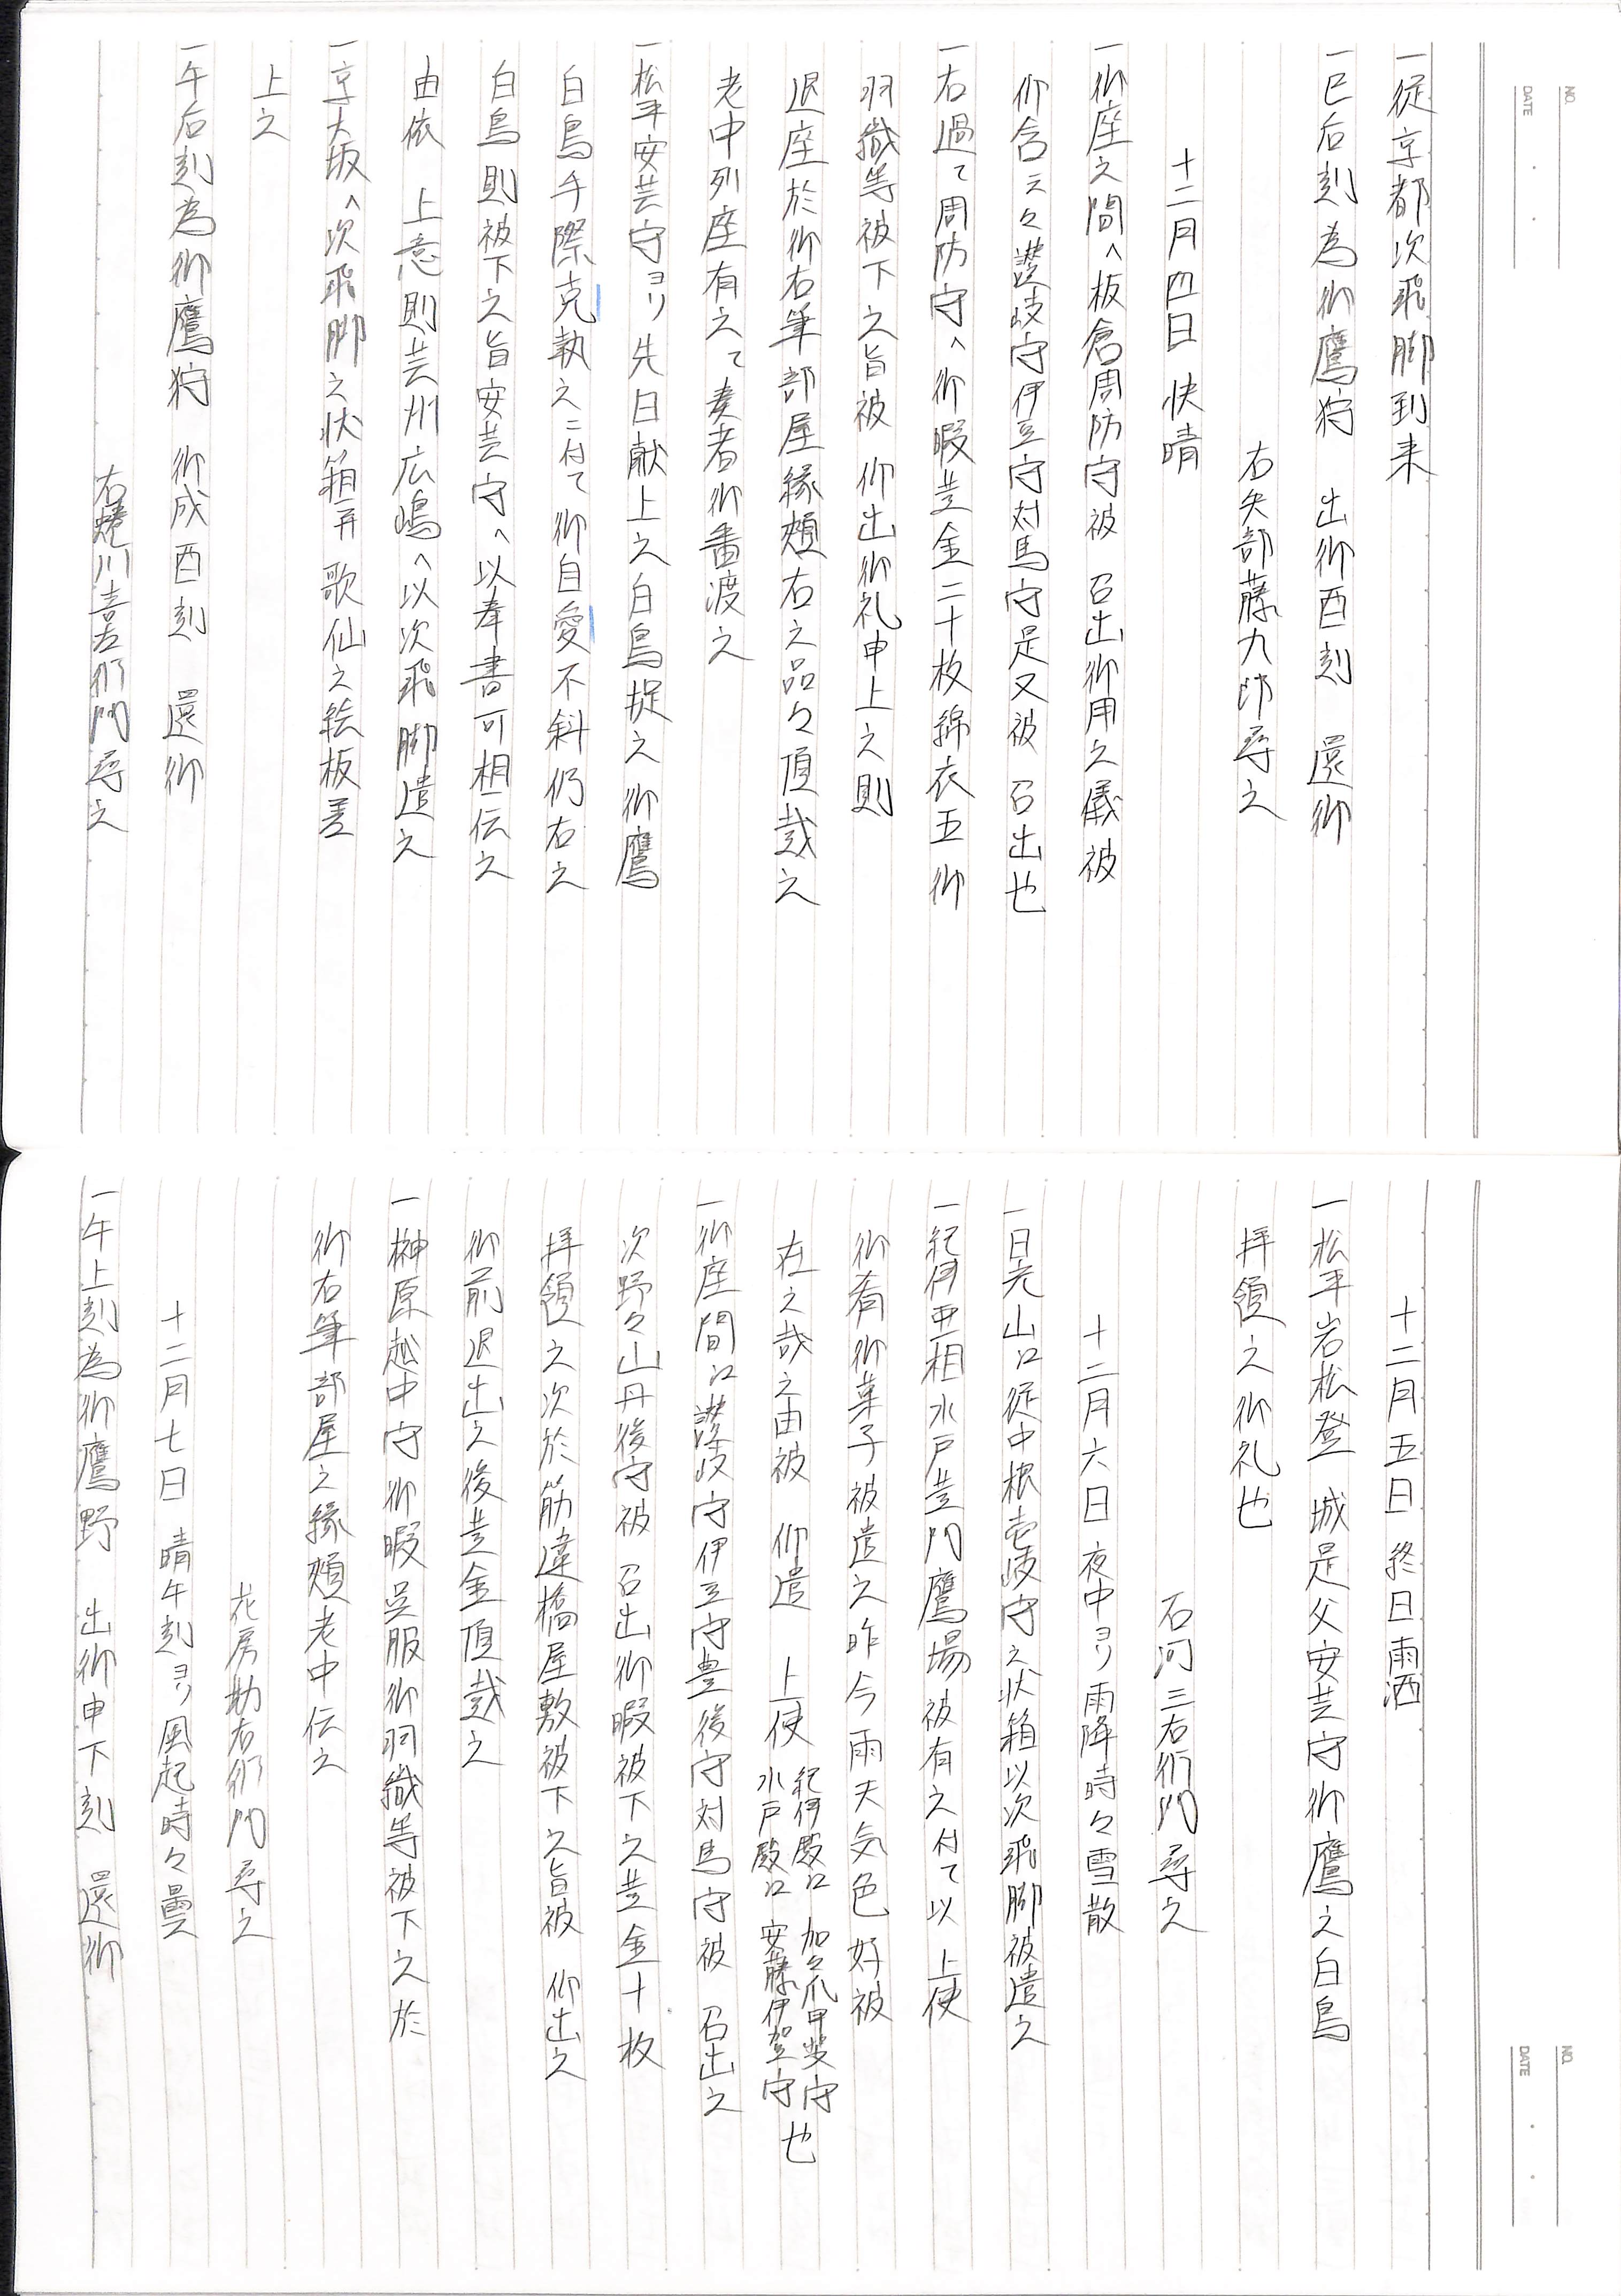 NO.
DATE
一従京都次飛脚到来
一巳后刻為御鷹狩　出御酉刻　還御
右矢部藤九郎尋之
十二月四日 快晴
一御座之間へ板倉周防守被　召出御用之儀被
仰含云々讃岐守伊豆守対馬守是又被　召出也
一右過て周防守へ御暇並金二十枚綿衣五御
羽織等被下之旨被　仰出御礼申上之則
退座於御右筆部屋縁頬右之品々頂戴之
老中列座有之て奏者御番渡之
一松平安芸守ヨリ先日献上之白鳥捉之御鷹
白鳥手際克執之ニ付て御自愛不斜仍右之
白鳥則被下之旨安芸守へ以奉書可相伝之
由依　上意則芸州広嶋へ以次飛脚遣之
一京大坂へ次飛脚之状箱并歌仙之絵板差
上之
一午后刻為御鷹狩　御成酉刻　還御
右蜷川喜左衛門尋之
NO.
DATE
十二月五日 終日雨洒
一松平岩松登　城是父安芸守御鷹之白鳥
拝領之御礼也
石河三右衛門尋之
十二月六日 夜中ヨリ雨降時々雪散
一日光山江従中根壱岐守之状箱以次飛脚被遣之
一紀伊亜相水戸並門鷹場被有之付て以　上使
御肴御菓子被遣之昨今雨天気色好被
在之哉之由被　仰遣　上使 紀伊殿江　加々爪甲斐守
水戸殿江　安藤伊賀守也
一御座間江讃岐守伊豆守豊後守対馬守被　召出之
次野々山丹後守被　召出御暇被下之並金十枚
拝領之次於筋違橋屋敷被下之旨被　仰出之
御前退出之後並金頂戴之
一榊原越中守御暇呉服御羽織等被下之於
御右筆部屋之縁頬老中伝之
花房勘右衛門尋之
十二月七日　晴午刻ヨリ風起時々曇
一午上刻為御鷹野　出御申下刻　還御